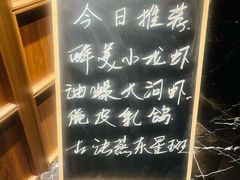 今日推荐
醉美小龙虾
油爆大河虾
脆皮乳鸽
古法蒸东星斑